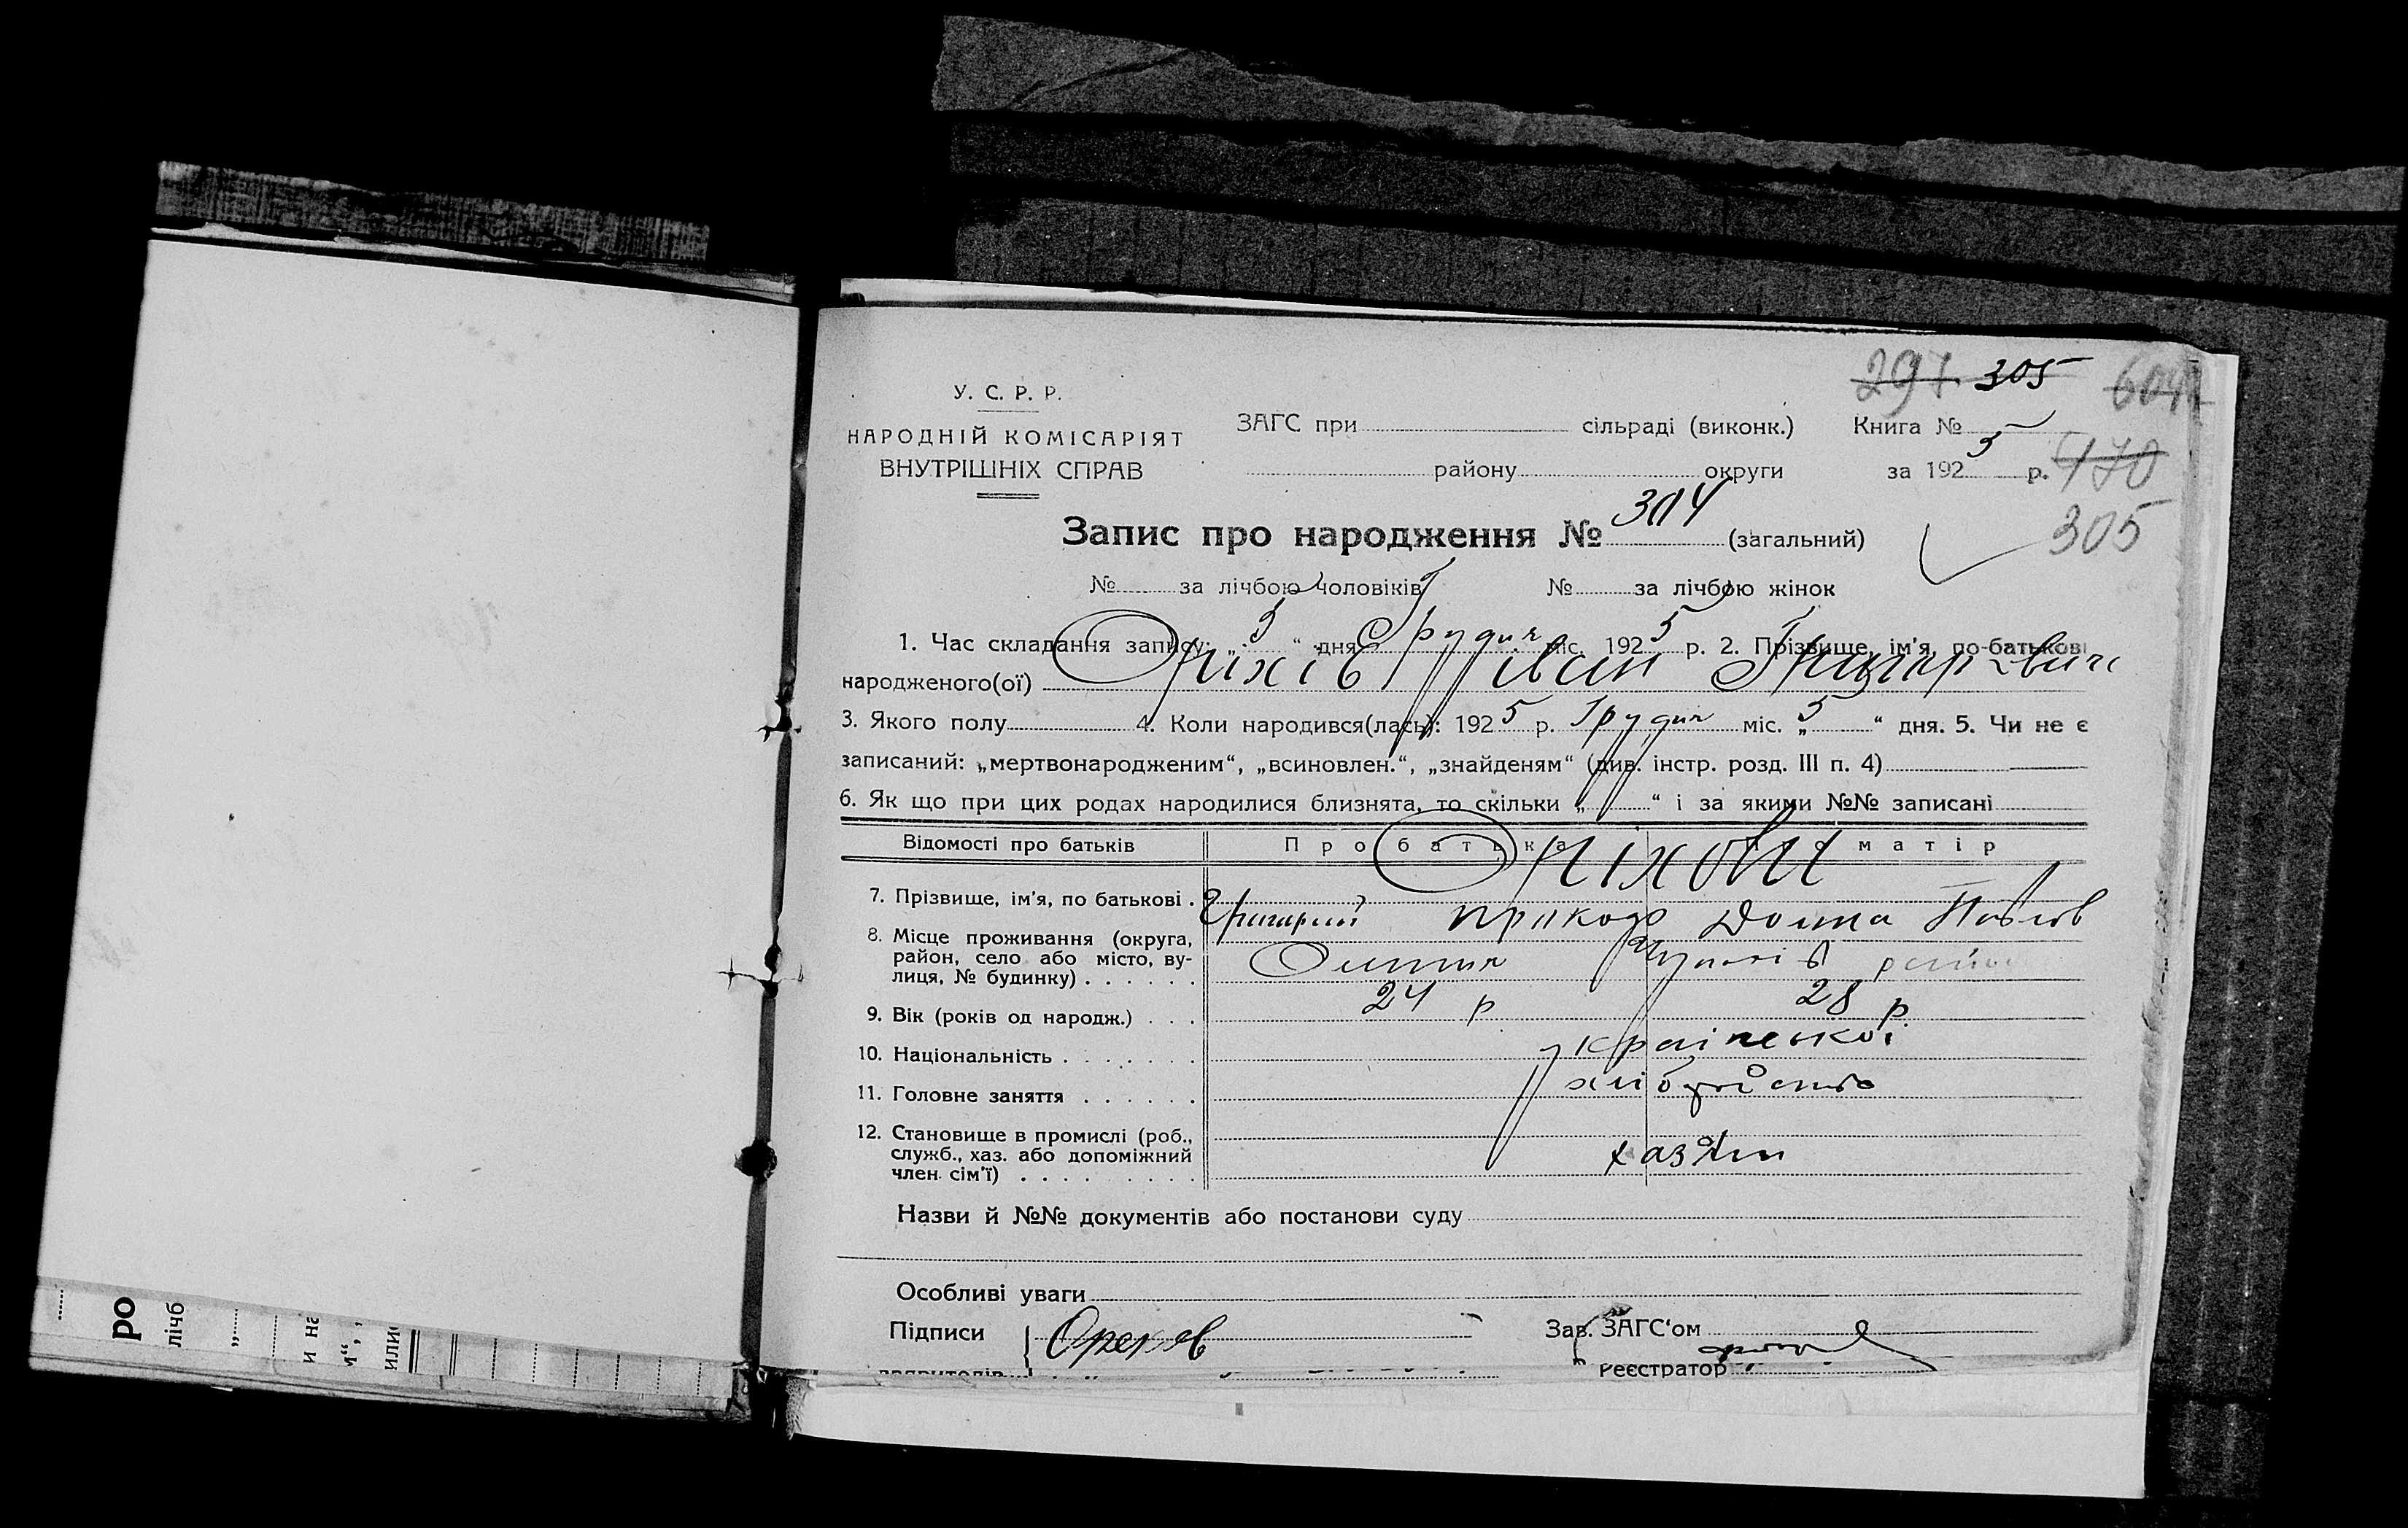 297 305 604
У. С. Р. Р.
НАРОДНІЙ КОМІСАРІЯТ
ВНУТРІШНІХ СПРАВ
ЗАГС при сільраді (виконк.) Книга №
району округи за 1925 р. 470
Запис про народження № 304 (загальний) 305
№ за лічбою чоловіків № за лічбою жінок
1. Час складання запису: „ “ дня Грудня міс. 1925 р. 2. Прізвище, ім'я, по-батькові
народженого(ої) Оріхів Іван Григорович
3. Якого полу 4. Коли народився(лась): 1925 р. Грудня міс. „5“ дня. 5. Чи не є
записаний: „мертвонародженим“, „всиновлен.“, „знайденям“ (див. інстр. розд. III п. 4)
6. Як що при цих родах народилися близнята, то скільки „ “ і за якими №№ записані
Відомості про батьків Про батька Про матір
Оріхови
7. Прізвище, ім'я, по батькові . Григорий Домна Павлов
8. Місце проживання (округа,
район, село або місто, ву-
лиця, № будинку) . . . . . .
9. Вік (років од народж.) . . . 24 р 28 р
10. Національність . . . . . . . української
11. Головне заняття . . . . . .
12. Становище в промислі (роб.,
служб., хаз. або допоміжний
член сім'ї) . . . . . . . . . хазяїн
Назви й №№ документів або постанови суду
Особливі уваги
Підписи Орехов Зав. ЗАГС'ом
заявителів Реєстратор
ро
лічб
и на
м“,
или